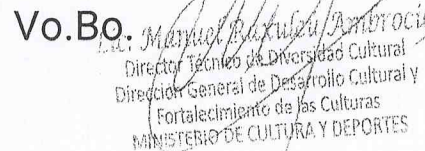 Vo.Bo.
Lic. Manuel Raxuleu Ambrocio
Director Técnico de Diversidad Cultural
Dirección General de Desarrollo Cultural y
Fortalecimiento de las Culturas
MINISTERIO DE CULTURA Y DEPORTES